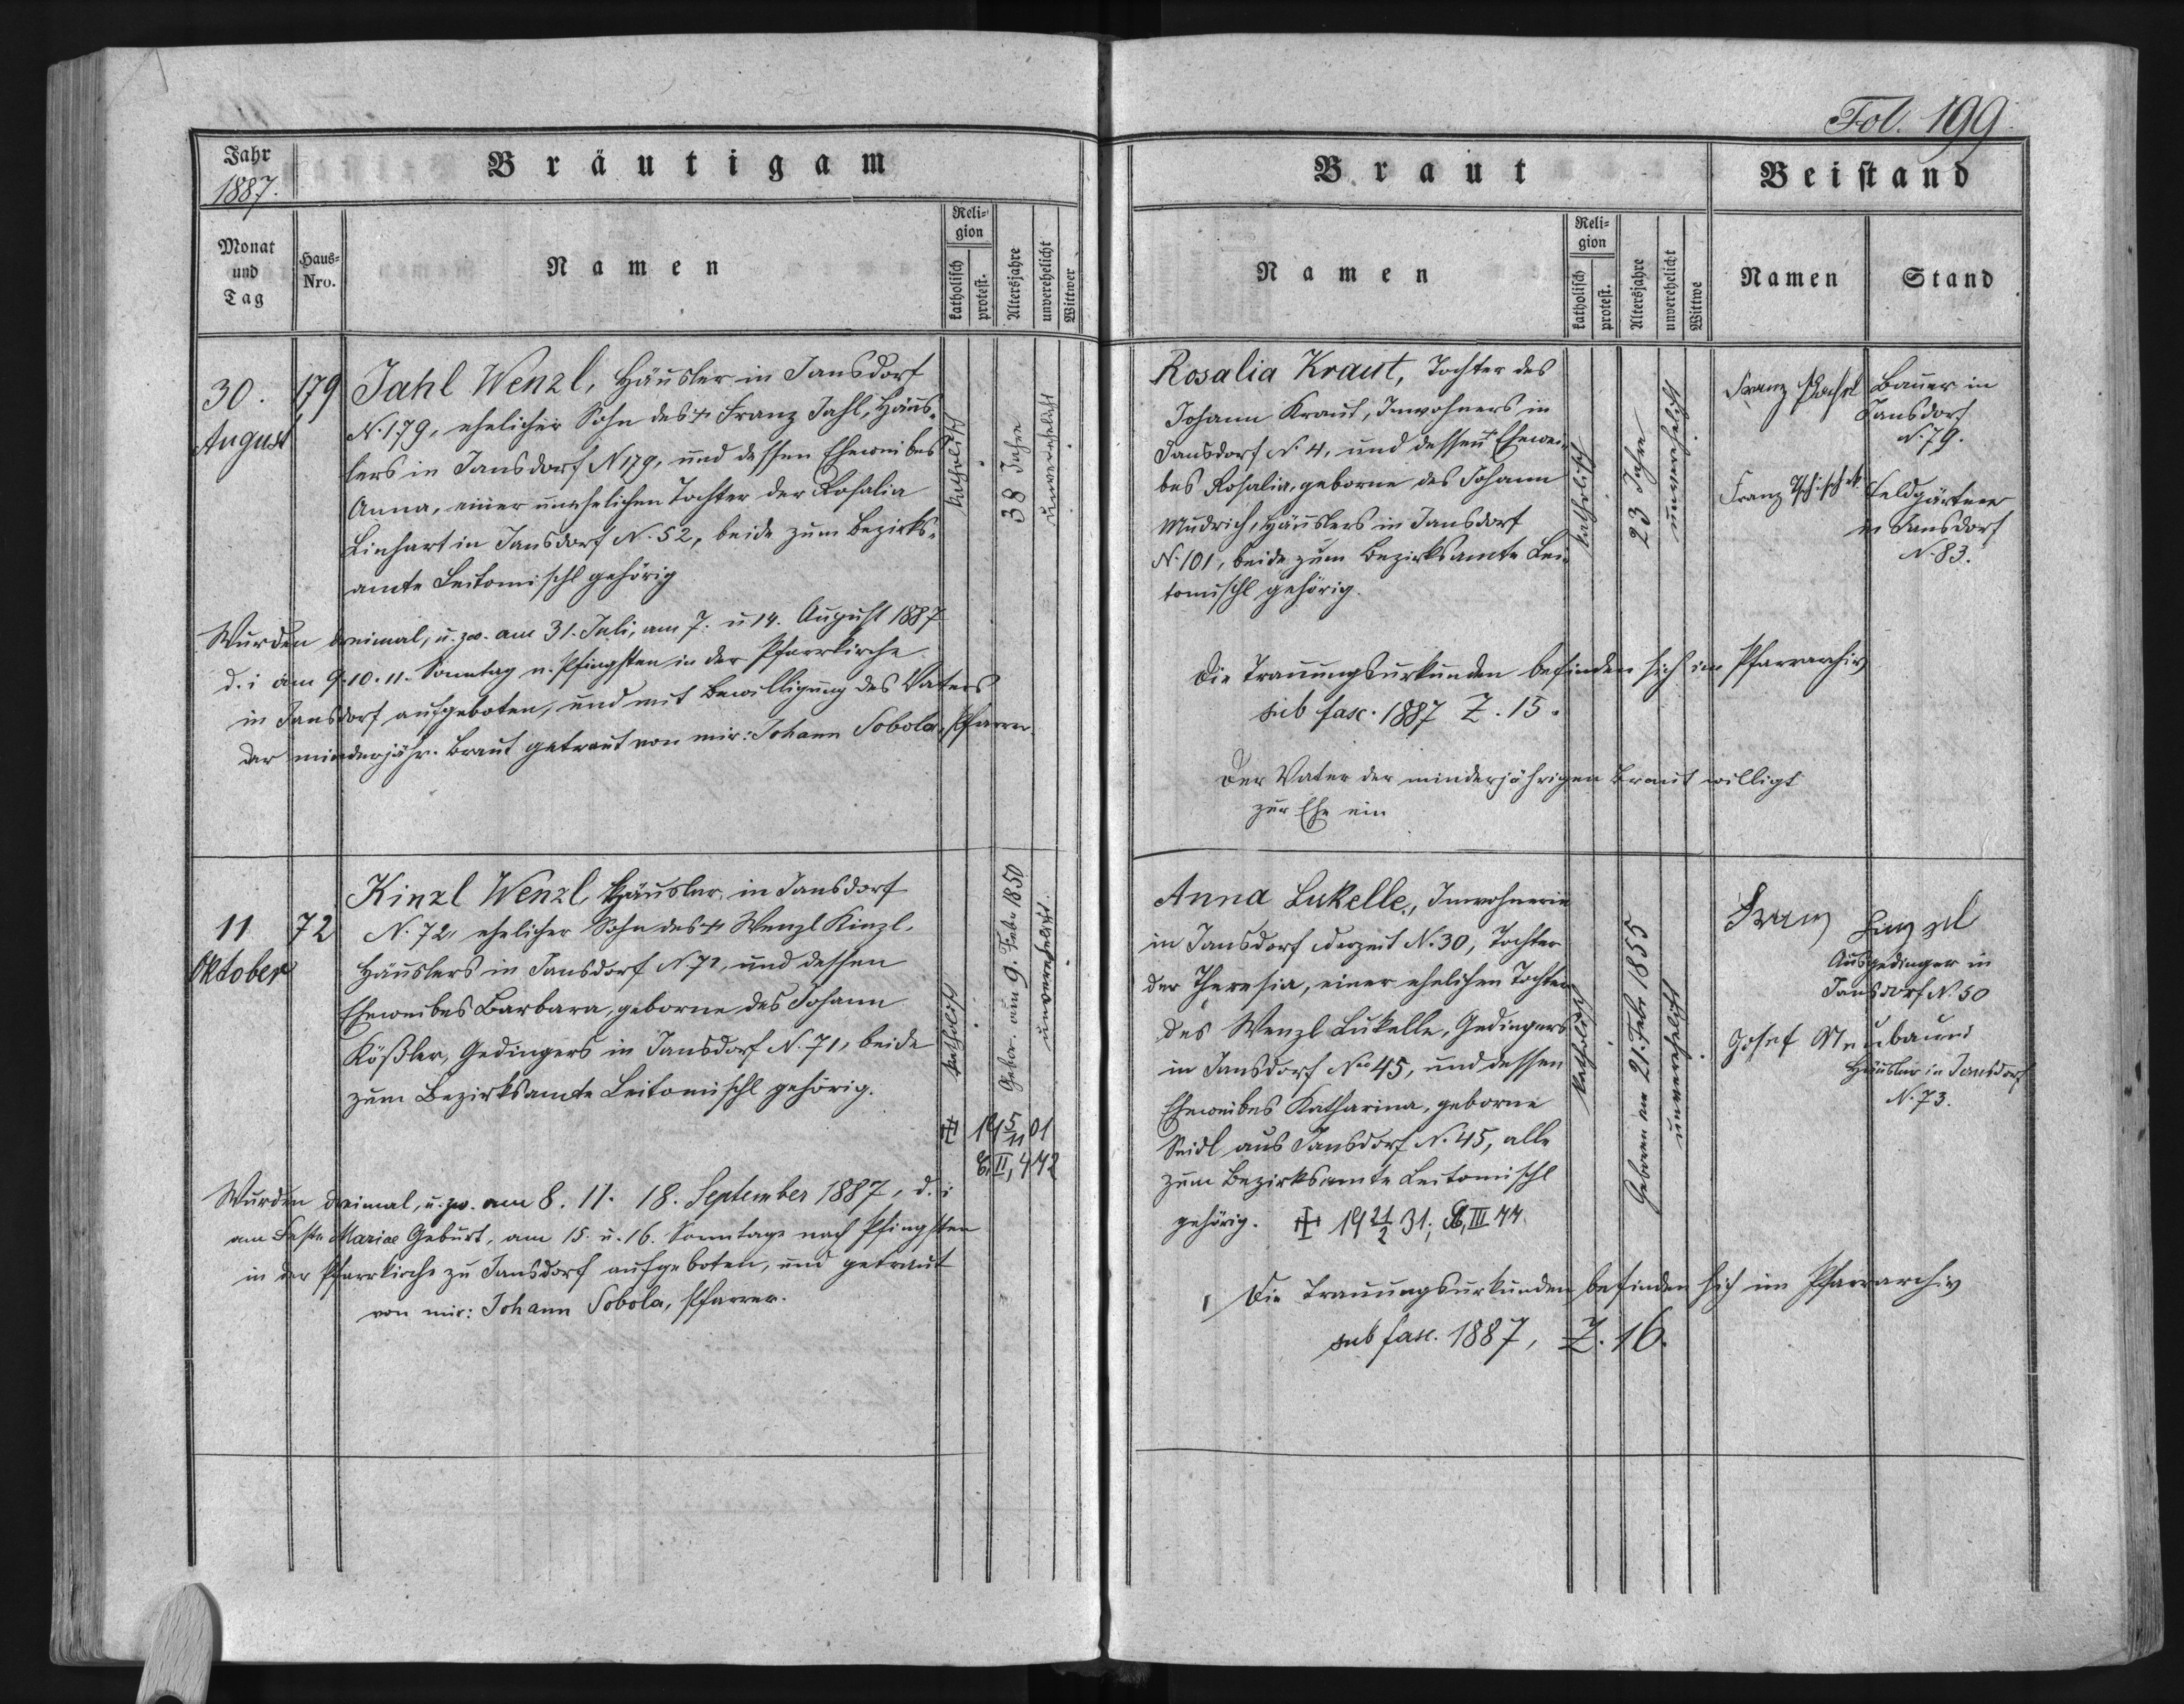 Fol. 199
Jahr
1887.
Bräutigam
Monat
und
Tag
Haus-
Nro.
Namen
Reli-
gion
katholisch
protest.
Altersjahre
unverehelicht
Wittwer
30.
August
179
Jahl Wenzl, Häusler in Jansdorf
N. 179, ehelicher Sohn des + Franz Jahl, Häus-
lers in Jansdorf N 179, und dessen Eheweibes
Anna, einer unehelichen Tochter der Rosalia
Linhart in Jansdorf N. 52, beide zum Bezirks-
amte Leitomischl gehörig
katholisch
38 Jahre
unverehelicht
Wurden dreimal, u. zw. am 31. Juli, am 7. u 14. August 1887
d. i am 9. 10. 11. Sonntag n. Pfingsten in der Pfarrkirche
in Jansdorf aufgeboten, und mit Bewilligung des Vaters
der minderjähr. Braut getraut von mir: Johann Sobola, Pfarrer.
11
Oktober
72
Kinzl Wenzl, Häusler in Jansdorf
N. 72, ehelicher Sohn des + Wenzl Kinzl,
Häuslers in Jansdorf N. 72, und dessen
Eheweibes Barbara, geborne des Johann
Kößler, Gedingers in Jansdorf N. 71, beide
zum Bezirksamte Leitomischl gehörig.
katholisch
Gebor. am 9. Feb. 1850
unverehelicht.
19 5/11 01
II, 442
Wurden dreimal, u. zw. am 8. 11. 18. September 1887, d. i
am Feste Mariae Geburt, am 15. u. 16. Sonntage nach Pfingsten
in der Pfarrkirche zu Jansdorf aufgeboten, und getraut
von mir: Johann Sobola, Pfarrer.
Braut
Namen
Reli-
gion
katholisch
protest.
Altersjahre
unverehelicht
Wittwe
Beistand
Namen
Stand
Rosalia Kraut, Tochter des
Johann Kraut, Inwohners in
Jansdorf N. 4, und dessen Ehewei-
bes Rosalia, geborne des Johann
Mudrich, Häuslers in Jansdorf
N. 101, beide zum Bezirksamte Lei-
tomischl gehörig.
katholisch
23 Jahre
unverehelicht
Franz
Bauer in
Jansdorf
N. 79.
Franz
Feldgärtner
in Jansdorf
N. 83.
Die Trauungsurkunden befinden sich im Pfarrarchiv
sub fasc. 1887 Z. 15.
Der Vater der minderjährigen Braut willigt
zur Ehe ein
Anna Lukelle, Inwohnerin
in Jansdorf derzeit N. 30, Tochter
der Theresia, einer ehelichen Tochter
des Wenzl Lukelle, Gedingers
in Jansdorf Nro 45, und dessen
Eheweibes Katharina, geborne
Seidl aus Jansdorf N. 45, alle
zum Bezirksamte Leitomischl
gehörig. 19 21/2 31; III 44
katholisch
Geboren am 21. Feb. 1855
unverehelicht
Franz
Ausgedinger in
Jansdorf N. 50
Josef Neubauer
Häusler in Jansdorf
N. 73.
Die Trauungsurkunden befinden sich im Pfarrarchiv
sub fasc. 1887, Z. 16.